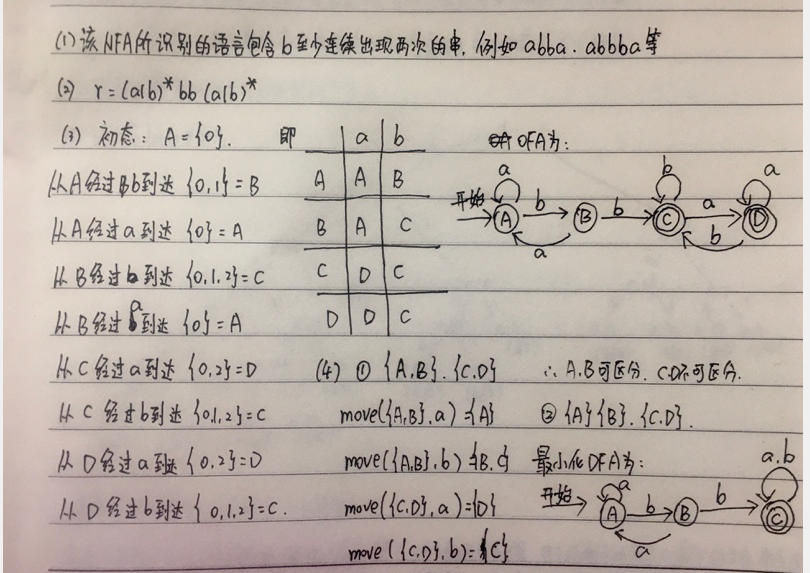 (1) 该NFA所识别的语言包含b至少连续出现两次的串, 例如abba、abbba等
(2) r=(a|b)*bb(a|b)*
(3) 初态: A={0}.
从A经过b到达 {0,1}=B
从A经过a到达 {0}=A
从B经过b到达 {0,1,2}=C
从B经过a到达 {0}=A
从C经过a到达 {0,2}=D
从C经过b到达 {0,1,2}=C
从D经过a到达 {0,2}=D
从D经过b到达 {0,1,2}=C.
即
a b
A A B
B A C
C D C
D D C
DFA为:
开始 A a b B a b C b a D b a
(4) ① {A,B}、{C,D}
move({A,B},a)={A}
move({A,B},b)={B,C}
move({C,D},a)={D}
move({C,D},b)={C}
∴ A,B可区分、C,D不可区分.
② {A}{B}、{C,D}.
最小化DFA为:
开始 A a b B a b C a,b